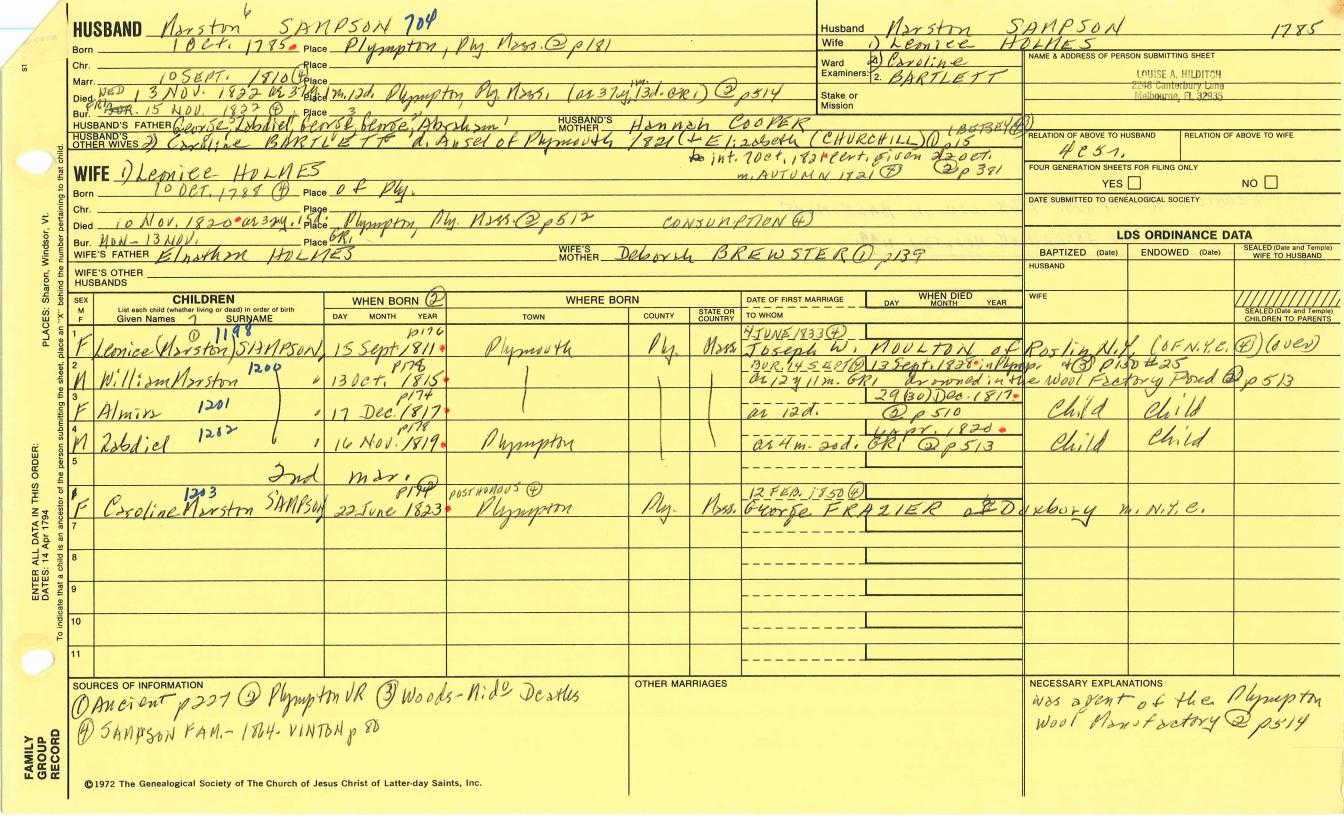 HUSBAND Marston 6 SAMPSON 704
Born 1 Oct. 1785 Place Plympton, Ply. Mass. ② p181
Chr. Place
Marr. 10 SEPT. 1810 ④ Place
Died WED 13 NOV. 1822 Place Plympton, Ply. Mass. (as 37y, 13d. GR1) ② p514
Bur. 15 NOV. 1822 ④ Place
HUSBAND'S FATHER George, Zabdiel, George, George, Abraham HUSBAND'S MOTHER Hannah COOPER
HUSBAND'S OTHER WIVES 2) Caroline BARTLETT d. Ansel of Plymouth 1821 (+ Elizabeth (CHURCHILL) ① p15 (BETSEY ④)
int. 7 Oct. 1821 cert. given 22 oct.
m. AUTUMN 1821 ④ ② p381
WIFE 1) Leonice HOLMES
Born 10 OCT. 1788 ④ Place of Ply.
Chr. Place
Died 10 Nov. 1820 as 32y. 1 Place Plympton, Ply. Mass. ② p512 CONSUMPTION ④
Bur. MON - 13 NOV. Place GR1
WIFE'S FATHER Elnathan HOLMES WIFE'S MOTHER Deborah BREWSTER ① p139
WIFE'S OTHER HUSBANDS
Husband Marston SAMPSON 1785
Wife 1) Leonice HOLMES
Ward 2) Caroline
Examiners: 2. BARTLETT
Stake or Mission
NAME & ADDRESS OF PERSON SUBMITTING SHEET
LOUISE A. HILDITCH
2248 Canterbury Lane
Melbourne, FL 32935
RELATION OF ABOVE TO HUSBAND RELATION OF ABOVE TO WIFE
4c5r.
FOUR GENERATION SHEETS FOR FILING ONLY
YES NO
DATE SUBMITTED TO GENEALOGICAL SOCIETY
LDS ORDINANCE DATA
BAPTIZED (Date) ENDOWED (Date) SEALED (Date and Temple) WIFE TO HUSBAND
HUSBAND
WIFE
SEALED (Date and Temple) CHILDREN TO PARENTS
SEX M F CHILDREN List each child (whether living or dead) in order of birth Given Names 7 SURNAME
WHEN BORN ② DAY MONTH YEAR
WHERE BORN TOWN COUNTY STATE OR COUNTRY
DATE OF FIRST MARRIAGE TO WHOM
WHEN DIED DAY MONTH YEAR
① 1198 p176 4 JUNE 1833 ④
1 F Leonice (Marston) SAMPSON 15 Sept. 1811 Plymouth Ply. Mass. Joseph W. MOULTON of Roslin N.Y. (OF N.Y.C. ④) (over)
1200 p178 BUR. 14 SEPT ④ 13 Sept. 1828 in Plymp. ③ p150 #25
2 M William Marston " 13 Oct. 1815 as 12y 11m. GR1 drowned in the Wool Factory Pond ② p513
1201 p174 29 (30) Dec. 1817
3 F Almira " 17 Dec. 1817 as 12d. ② p510 Child Child
1202 p178 Apr. 1820
4 M Zabdiel " 16 Nov. 1819 Plympton as 4m. 20d. GR1 ② p513 Child Child
5
2nd mar.
1203 p174 POSTHUMOUS ④ 12 FEB. 1850 ④
F Caroline Marston SAMPSON 22 June 1823 Plympton Ply. Mass. George FRAZIER of Duxbury m. N.Y.C.
7
8
9
10
11
SOURCES OF INFORMATION
① Ancient p227 ② Plympton VR ③ Woods-Mido Deaths
④ SAMPSON FAM. - 1864 - VINTON p 80
OTHER MARRIAGES
NECESSARY EXPLANATIONS
Was agent of the Plympton
Wool Manufactory ② p514
©1972 The Genealogical Society of The Church of Jesus Christ of Latter-day Saints, Inc.
FAMILY GROUP RECORD
ENTER ALL DATA IN THIS ORDER:
DATES: 14 Apr 1794
PLACES: Sharon, Windsor, Vt.
To indicate that a child is an ancestor of the person submitting the sheet, place an "X" behind the number pertaining to that child.
S1